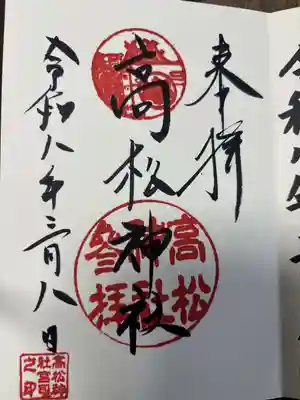 奉拝
高松神社
高松
神社
參拝
令和八年三月八日
高松神
社宮司
之印